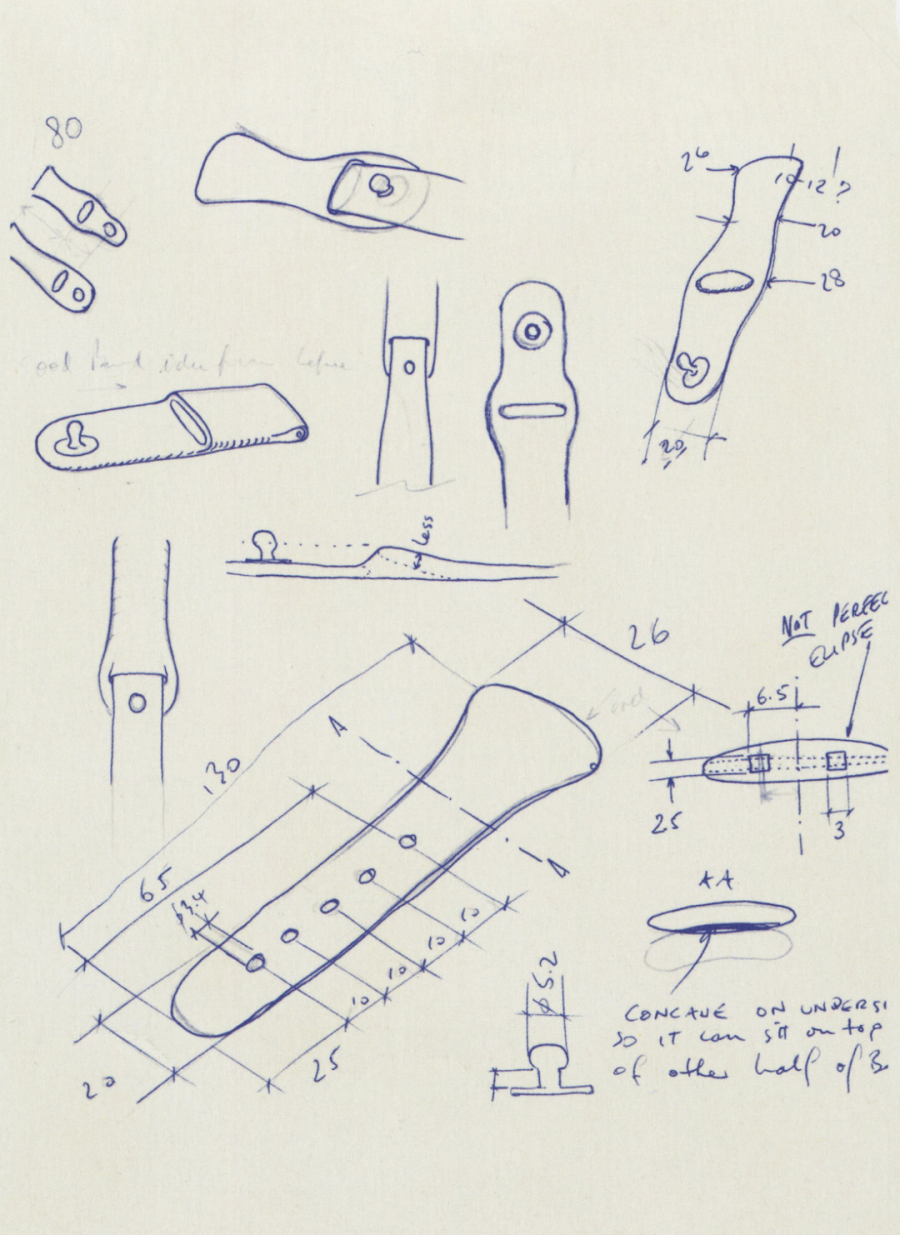 80
26
10
12?
20
28
20
Less
26
NOT PERFEC
ELIPSE
6.5
25
3
130
65
ø3.4
A
A
10
10
10
10
25
20
AA
ø5.2
CONCAVE ON UNDERSI
SO IT can sit on top
of other half of B